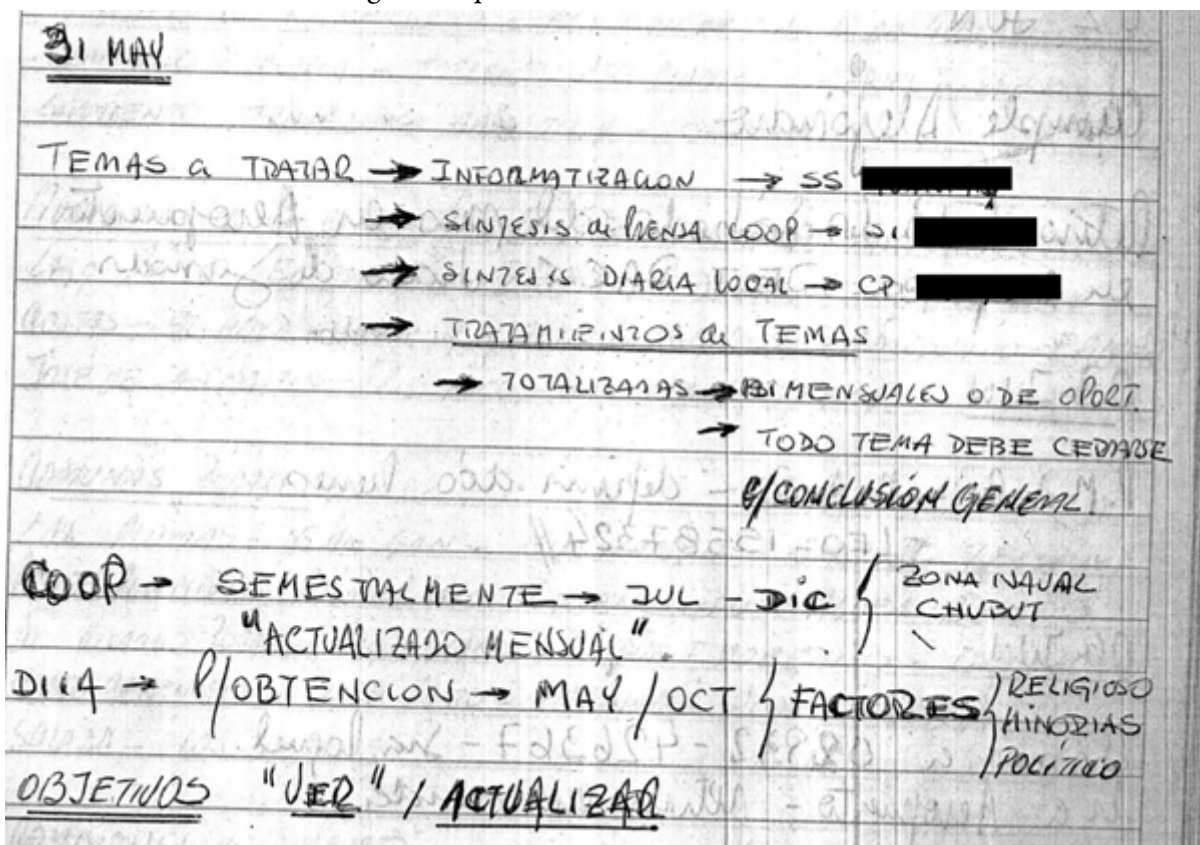 31 MAY
TEMAS a TRATAR → INFORMATIZACION → SS
→ SINTESIS de PRENSA COOP →
→ SINTESIS DIARIA LOCAL → CP.
→ TRATAMIENTOS de TEMAS
→ TOTALIZADAS → BIMENSUALES O DE OPORT.
→ TODO TEMA DEBE CERRARSE
c/CONCLUSIÓN GENERAL
COOP → SEMESTRALMENTE → JUL - DIC { ZONA NAVAL
CHUBUT
"ACTUALIZADO MENSUAL"
→ P/OBTENCION → MAY / OCT { FACTORES { RELIGIOSO
MINORIAS
POLITICO
OBJETIVOS "VER" / ACTUALIZAR